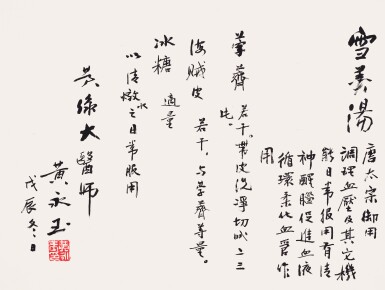 雪羹湯
唐太宗御用
調理血壓及其它機
能日常服用有清
神醒腦促進血液
循環柔化血管作
用
荸薺 若干,帶皮洗淨切成二三
比。
海賊皮 若干,与荸薺等量。
冰糖 適量
以清水燉之日常服用
黃綠大醫師
黃永玉
戊辰冬日